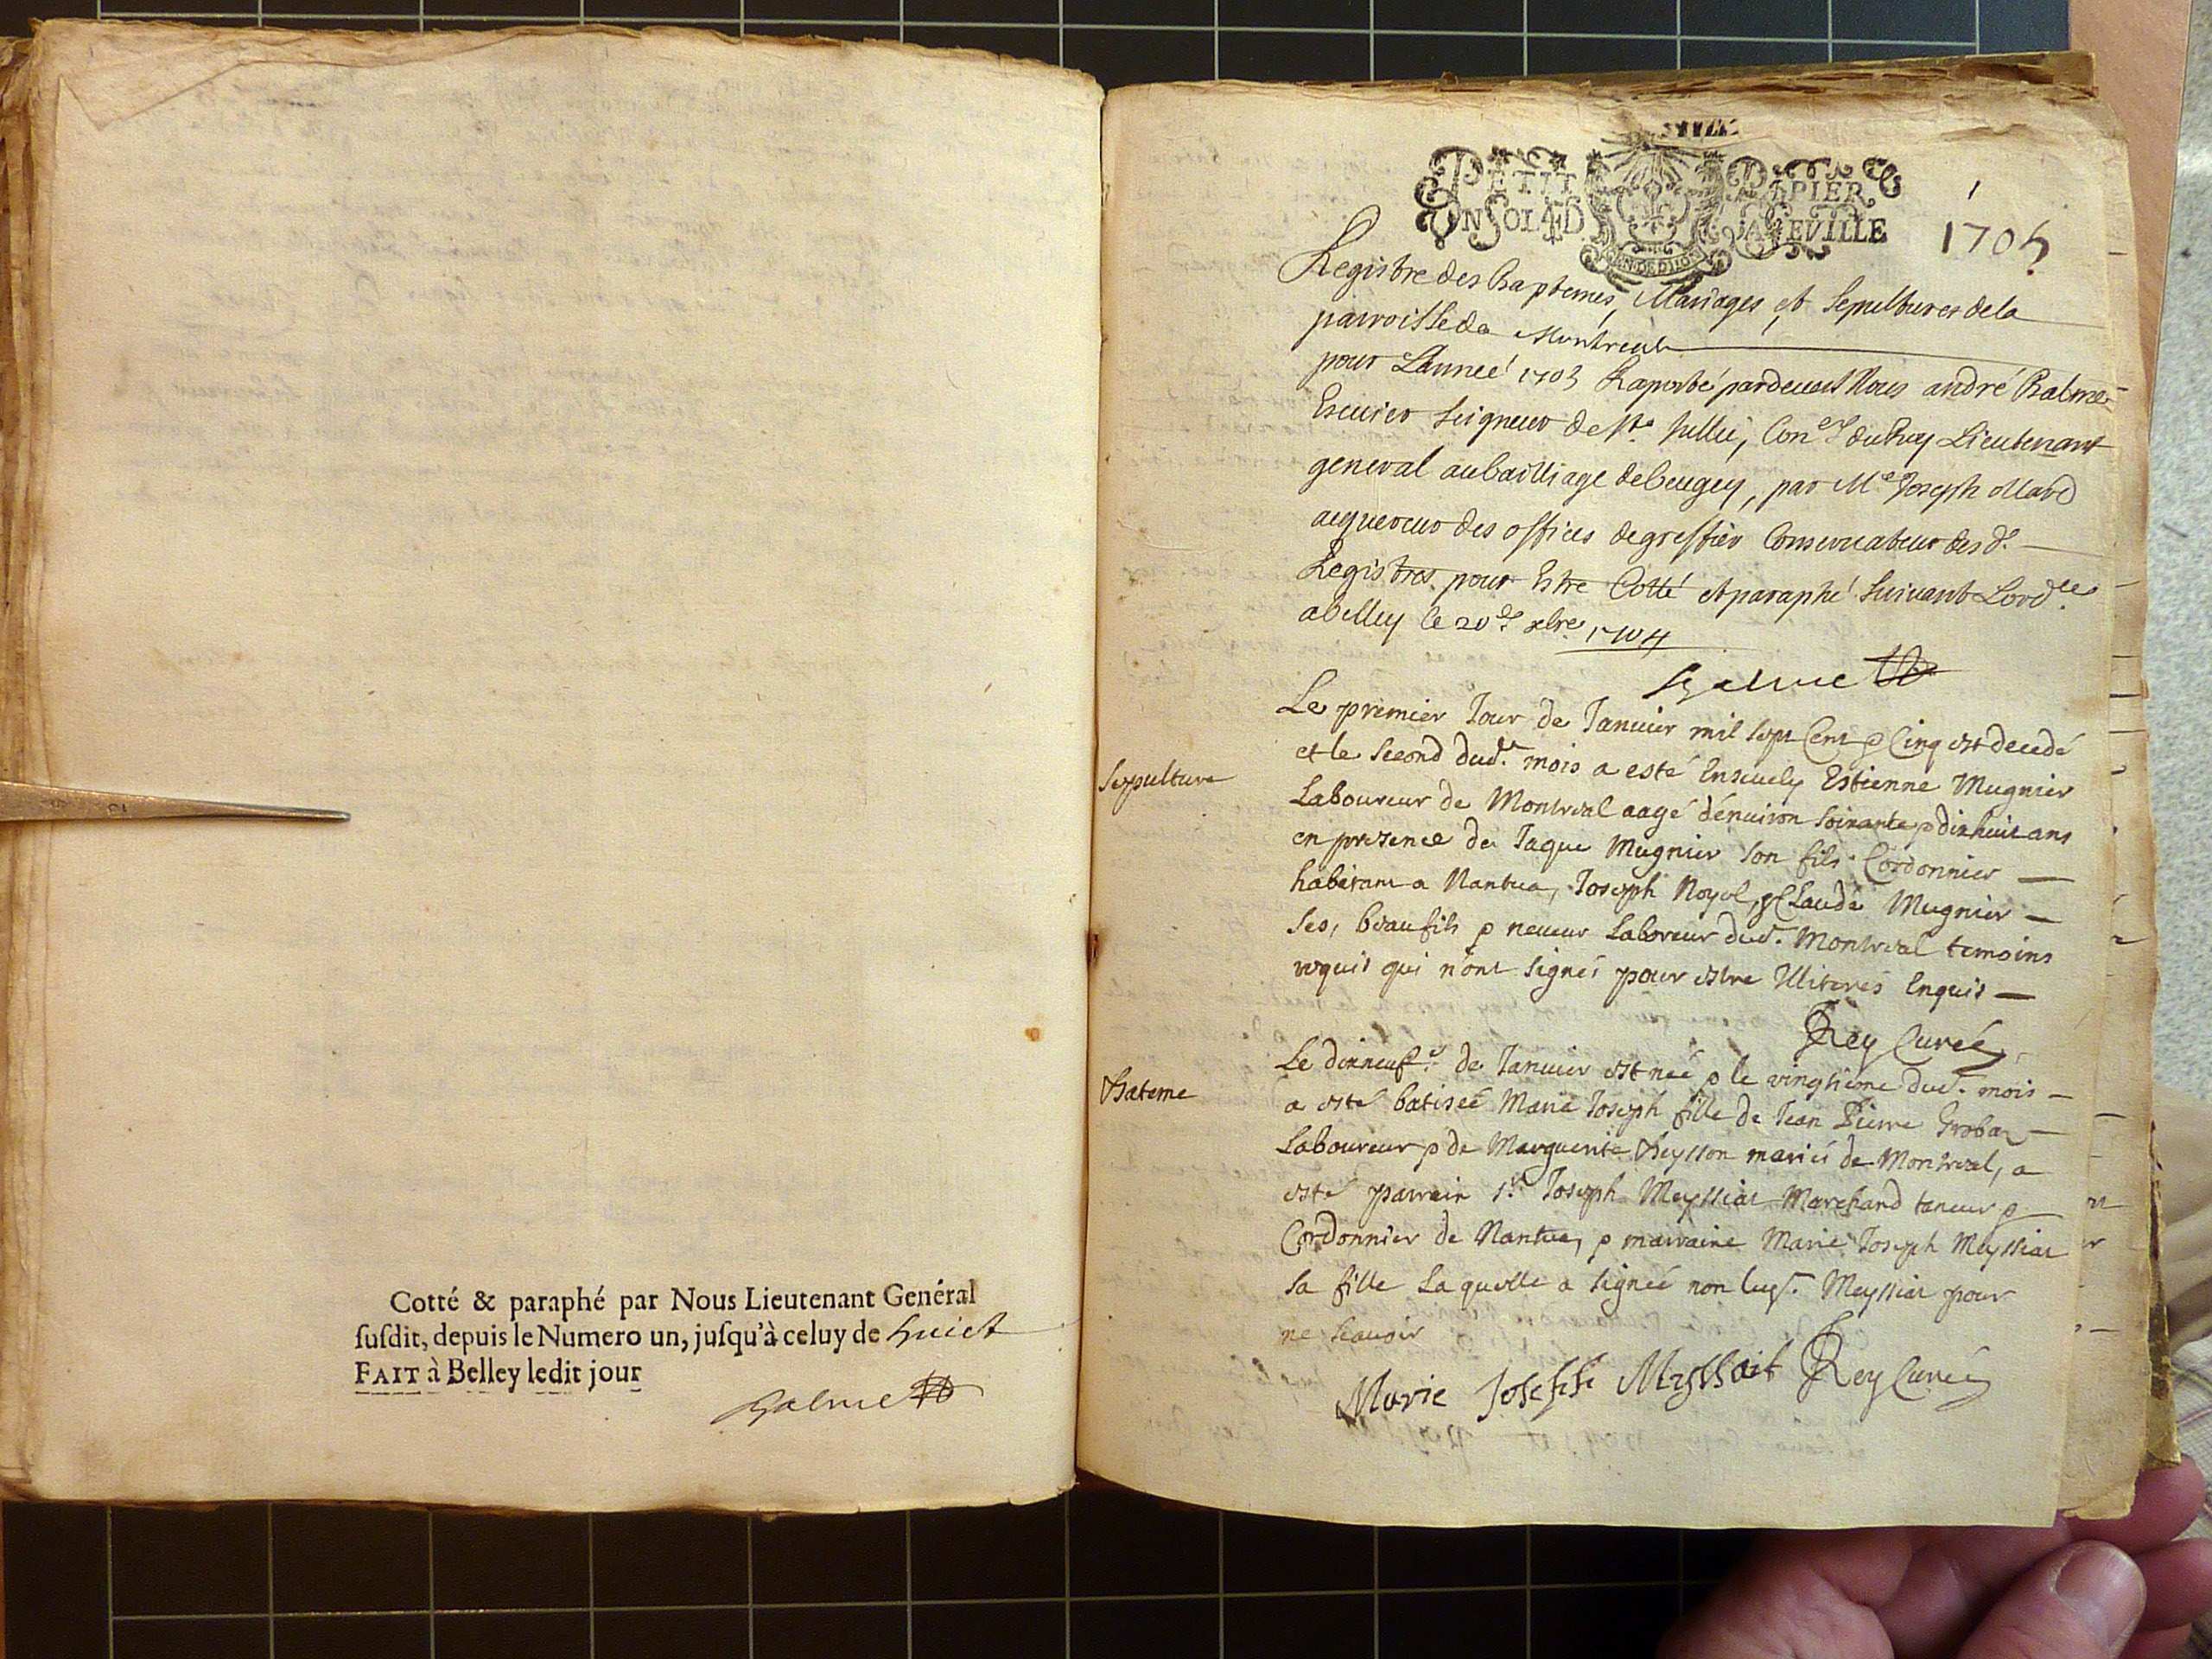 Cotté & paraphé par Nous Lieutenant Genéral
ſuſdit, depuis le Numero un, juſqu'à celuy de huict
FAIT à Belley ledit jour
Balme
PETIT PAPIER
UN SOL 4 D. LA FEUILLE
GEN. DE DIJON
1
1705
Registre des Baptemes, Mariages et Sepultures de la
parroisse de Montreal
pour L'année 1705 Raporté pardevant Nous andré Balme
Escuier Seigneur de Ste Jullie, Coner du Roy Lieutenant
general au bailliage de beugey, par Me Joseph
acquereur des offices de greffier Conservateur des d.
Registres pour Estre Cotté et paraphé suivant Lordce
a belley le 20e xbre 1704
Balme
Sepulture
Le premier Jour de Januier mil sept Cent & Cinq est decedé
et le second dud. mois a esté Enseuely Estienne Mugnier
Laboureur de Montreal aagé d'énuiron soixante & dixhuit ans
en presence de Jaque Mugnier son fils Cordonnier
habitant a Nantua, Joseph Noyel, & Claude Mugnier
ses, beaufils & neueur Laboreur dud. Montreal temoins
requis qui n'ont signés pour estre Illiterés Enquis
Rey Curé
Bateme
Le dixneufe de Januier est neé & le vingtiéme dud. mois
a esté batiseé Marie Joseph fille de Jean Pierre Grobas
Laboureur & de Marguerite Beysson mariés de Montreal, a
esté parrein sr Joseph Meyssiat Marchand taneur &
Cordonnier de Nantua, & marraine Marie Joseph Meyssiat
sa fille Laquelle a signeé non led. Meyssiat pour
ne scauoir
Marie Josephe Myssait Rey Curé